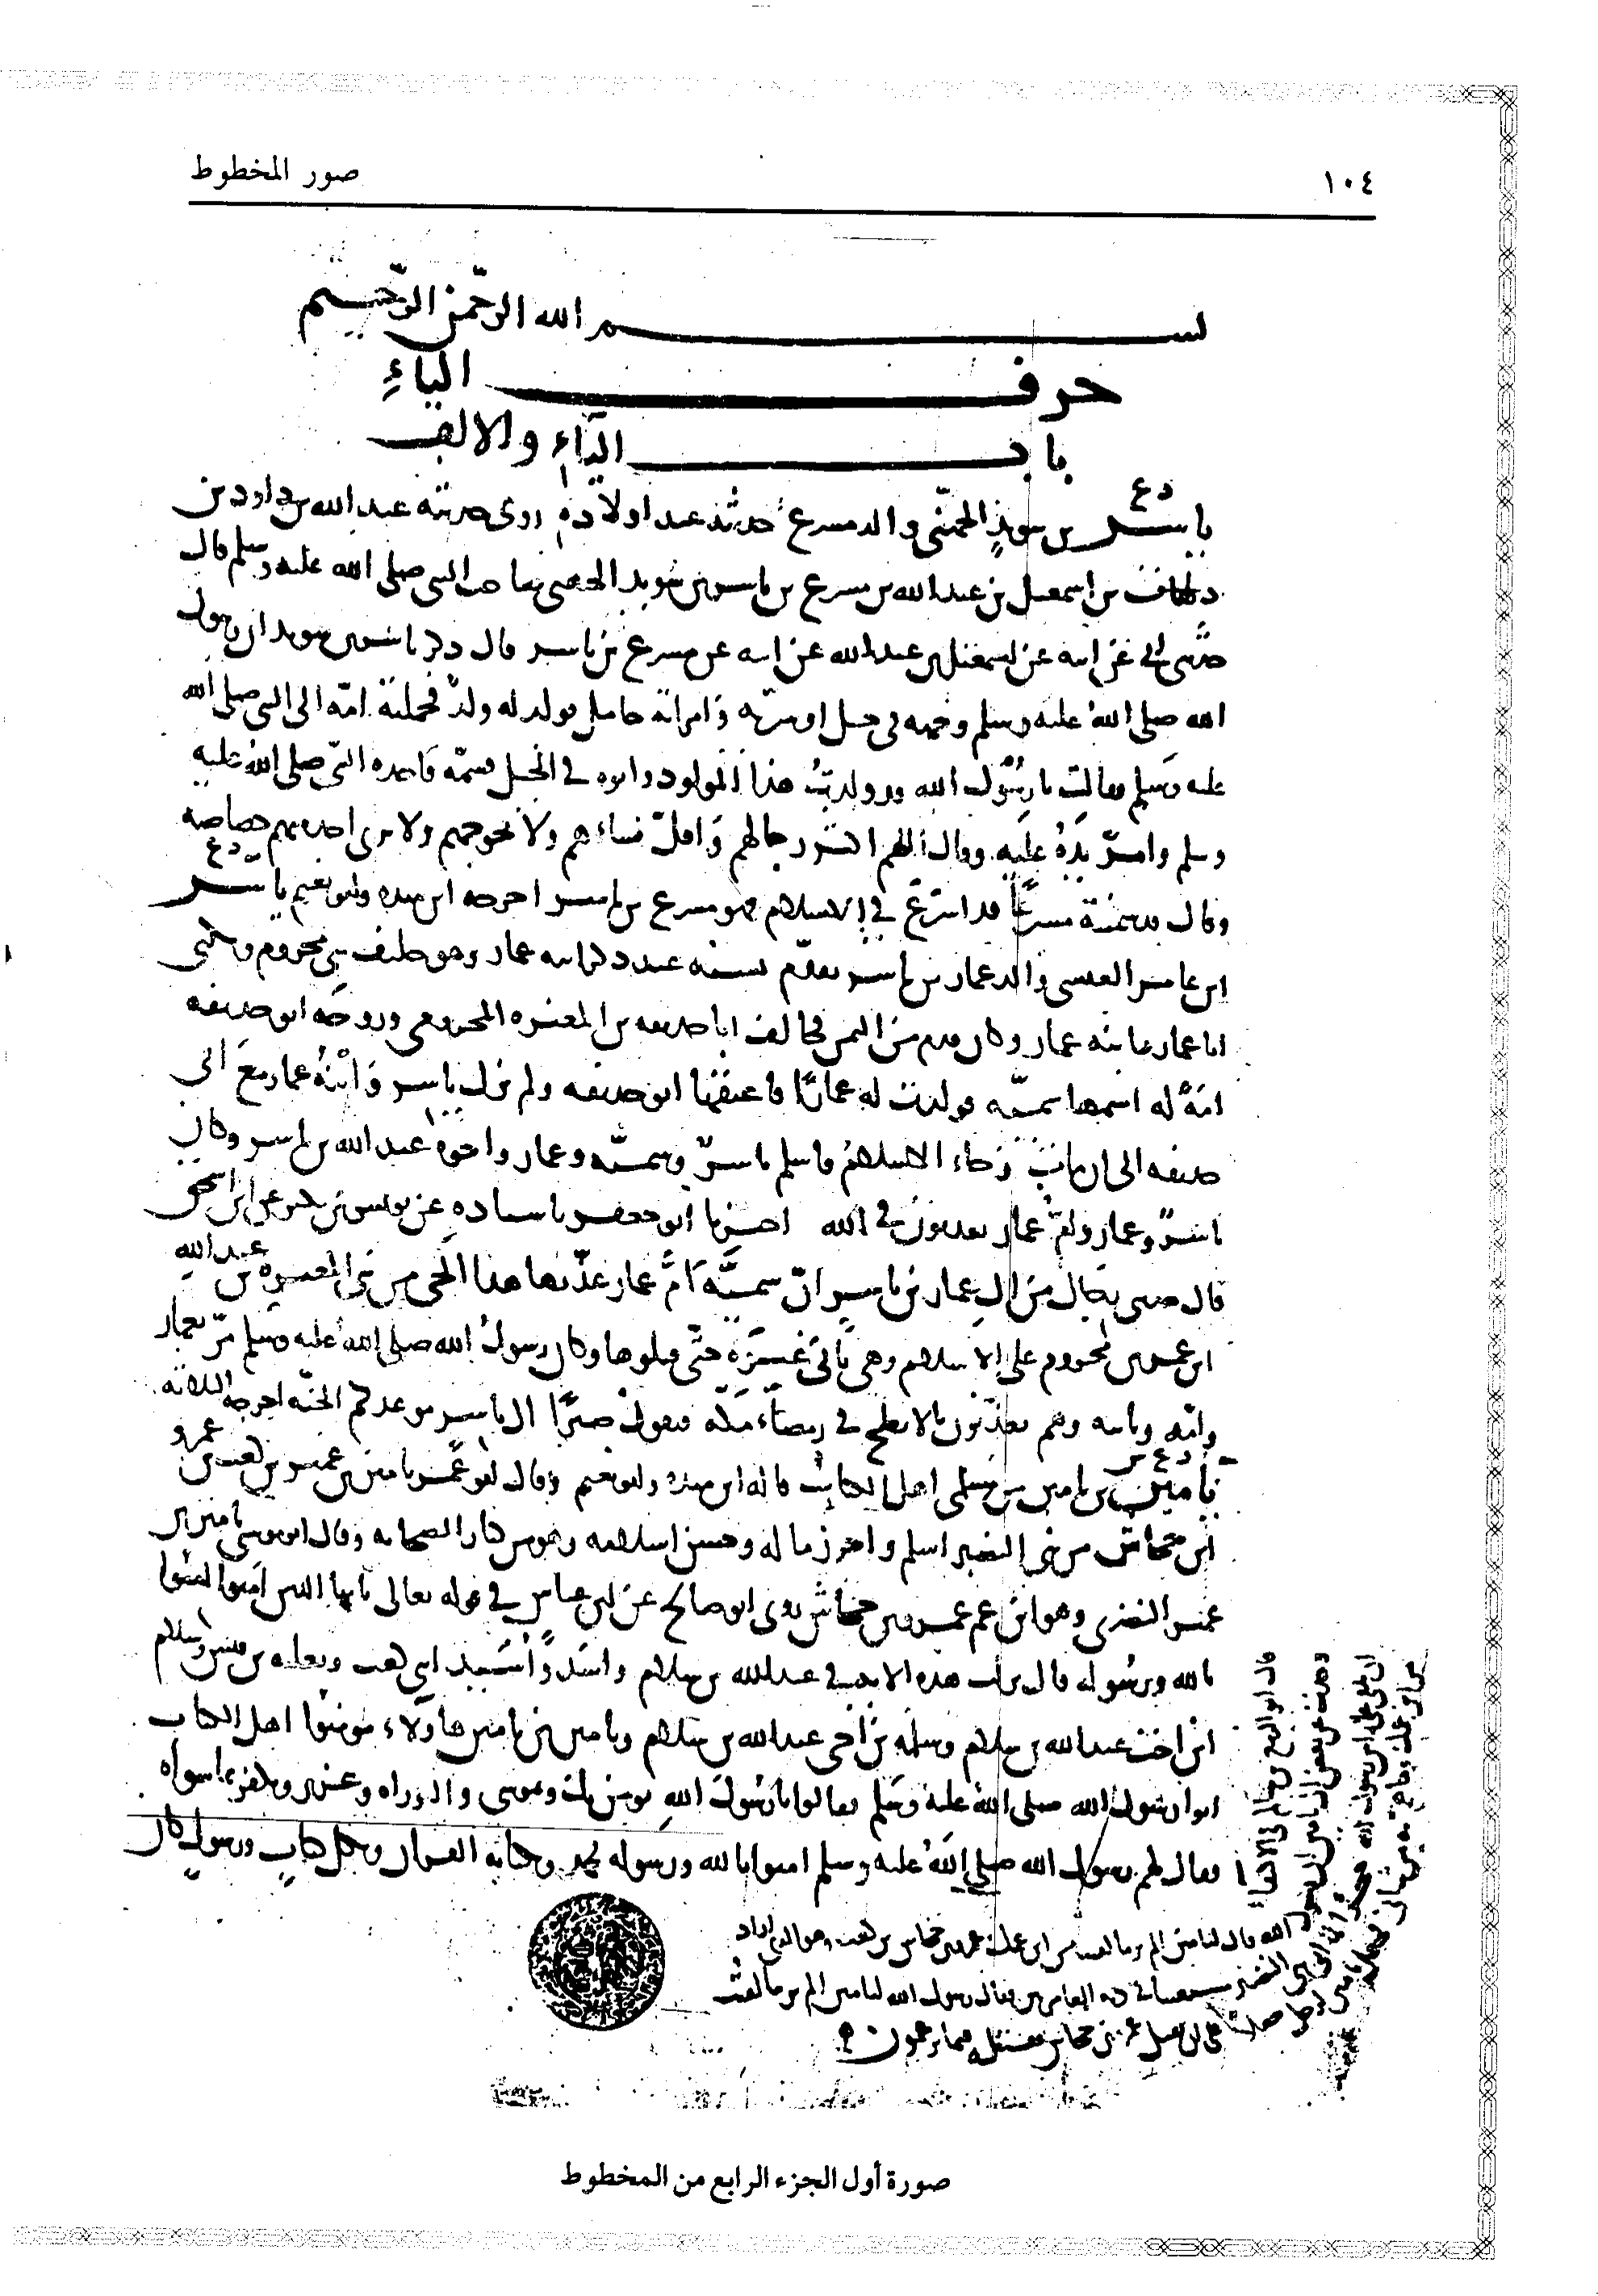 ١٠٤
صور المخطوط
بسم الله الرحمن الرحيم
حرف الياء
باب الياء والالف
د ع
ياسر بن سويد الجهني والد مسرع حديثه عند اولاده روى حديثه عبد الله بن داود بن
دلهاث بن اسمعيل بن عبد الله بن مسرع بن ياسر بن سويد الجهني صاحب النبي صلى الله عليه وسلم قال
حدثني ابي عن ابيه عن اسمعيل بن عبد الله عن ابيه عن مسرع بن ياسر قال ذكر ياسر بن سويد ان رسول
الله صلى الله عليه وسلم وجهه في خيل او سرية وامراته حامل فولد له ولد فحملته امه الى النبي صلى الله
عليه وسلم فقالت يا رسول الله قد ولدت هذا المولود وابوه في الخيل فسمه فاخذه النبي صلى الله عليه
وسلم وامر يده عليه وقال اللهم اكثر رجالهم واقل نساءهم ولا تحوجهم ولا تري احدا منهم خصاصة
وقال سميته مسرعا قد اسرع في الاسلام فهو مسرع بن ياسر اخرجه ابن منده وابو نعيم ياسر
د ع
ابن عامر العنسي والد عمار بن ياسر تقدم نسبه عند ذكر ابنه عمار وهو حليف بني مخزوم ويكنى
ابا عمار بابنه عمار وكان قدم من اليمن فحالف ابا حذيفه بن المغيره المخزومي وزوجه ابو حذيفه
امة له اسمها سميه فولدت له عمارا فاعتقها ابو حذيفه ولم يزل ياسر وابنه عمار مع ابي
حذيفه الى ان مات وجاء الاسلام فاسلم ياسر وسميه وعمار واخوه عبد الله بن ياسر وكان
ياسر وعمار وام عمار يعذبون في الله اخبرنا ابو جعفر باسناده عن يونس بن بكير عن ابن اسحق
قال حدثني رجال من ال عمار بن ياسر ان سمية ام عمار عذبها هذا الحي من بني المغيره بن عبد الله
ابن عمر بن مخزوم على الاسلام وهي تأبى غيره حتى قتلوها وكان رسول الله صلى الله عليه وسلم مر بعمار
وامه وابيه وهم يعذبون بالابطح في رمضاء مكة فيقول صبرا ال ياسر موعدكم الجنه اخرجه الثلاثه
د ع س
يامين بن يامين من مسلمي اهل الكتاب قاله ابن منده وابو نعيم وقال ابو عمر يامين بن عمير بن كعب بن عمرو
ابن جحاش من بني النضير اسلم واحرز ماله وحسن اسلامه وهو من كبار الصحابه وقال ابو موسى يامين بن
عمير النضري وهو ابن عم عمرو بن جحاش روى ابو صالح عن ابن عباس في قوله تعالى يا ايها الذين امنوا امنوا
بالله ورسوله قال نزلت هذه الايه في عبد الله بن سلام واسد وأسيد ابني كعب وثعلبه بن قيس وسلام
ابن اخت عبد الله بن سلام وسلمه بن اخي عبد الله بن سلام ويامين بن يامين هاولاء مومنوا اهل الكتاب
اتوا رسول الله صلى الله عليه وسلم فقالوا يا رسول الله نومن بك وبموسى والتوراه وعزير ونكفر بما سواه
فقال لهم رسول الله صلى الله عليه وسلم امنوا بالله ورسوله محمد وكتابه القران وبكل كتاب ورسول كان
الله قال ليامين الم تر ما لقيت من ابن عمك عمرو بن جحاش بن كعب وهو الذي اراد
صورة أول الجزء الرابع من المخطوط